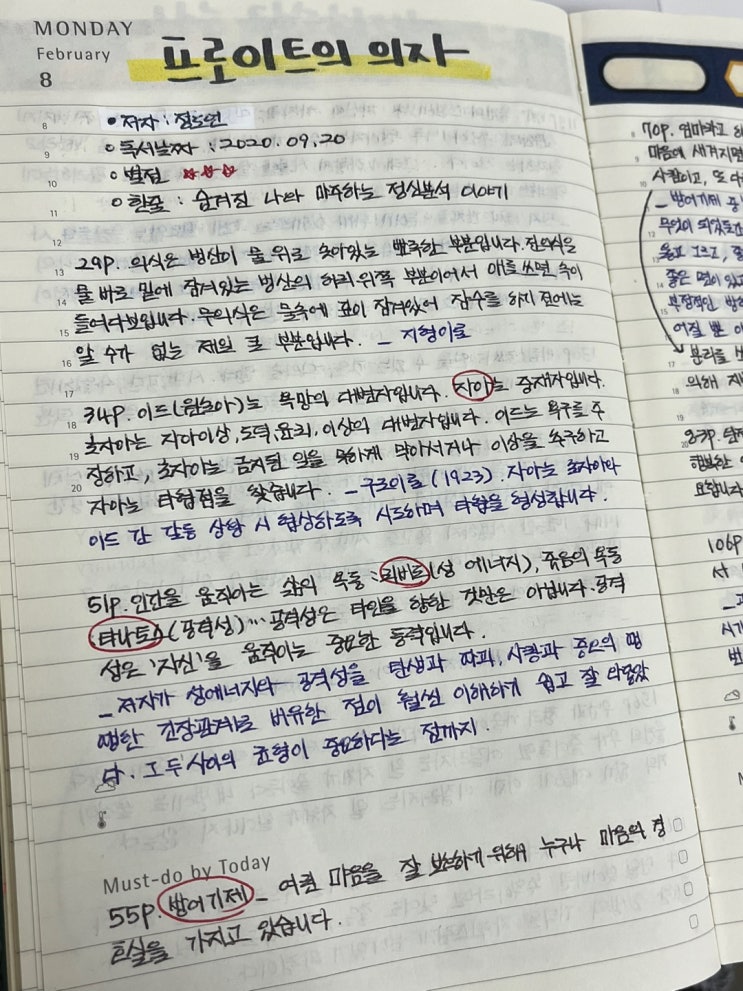 MONDAY
February
8
프로이트의 의자
• 저자 : 정도언
• 독서날짜 : 2020. 09. 20
• 별점
• 한줄 : 숨겨진 나와 마주하는 정신분석 이야기
29p. 의식은 빙산이 물 위로 솟아있는 뾰족한 부분입니다. 전의식은
물 바로 밑에 잠겨있는 빙산의 허리 위쪽 부분이어서 애를 쓰면 속이
들여다보입니다. 무의식은 물속에 깊이 잠겨있어 잠수를 하기 전에는
알 수가 없는 제일 큰 부분입니다. - 지형이론
34p. 이드(원초아)는 욕망의 대변자입니다. 자아는 중재자입니다.
초자아는 자아이상, 도덕, 윤리, 이상의 대변자입니다. 이드는 욕구를 주
장하고, 초자아는 금지된 일을 못하게 막아서거나 이상을 촉구하고
자아는 타협점을 찾습니다. - 구조이론(1923). 자아는 초자아와
이드 간 갈등 상황 시 협상하도록 시도하며 타협을 형성합니다.
51p. 인간을 움직이는 삶의 욕동 : 리비도(성 에너지), 죽음의 욕동
타나토스(공격성)… 공격성은 타인을 향한 것만은 아닙니다. 공격
성은 '자신'을 움직이는 중요한 동력입니다.
- 저자가 성에너지와 공격성을 탄생과 파괴, 사랑과 증오의 팽
팽한 긴장관계로 비유한 점이 훨씬 이해하기 쉽고 잘 와닿았
다. 그 두 사이의 균형이 중요하다는 점까지.
Must-do by Today
55p. 방어기제 - 여린 마음을 잘 보호하기 위해 누구나 마음의 경
호실을 가지고 있습니다.
70p. 엄마라고
마음에 새겨지면
사람이고, 또 다
- 방어기제 중
무엇이 되었든간
옳고 그르고,
좋은 면이 있고
부정적인 방
어질 뿐
분리를
의해
83p.
행복한
요합니다
106p